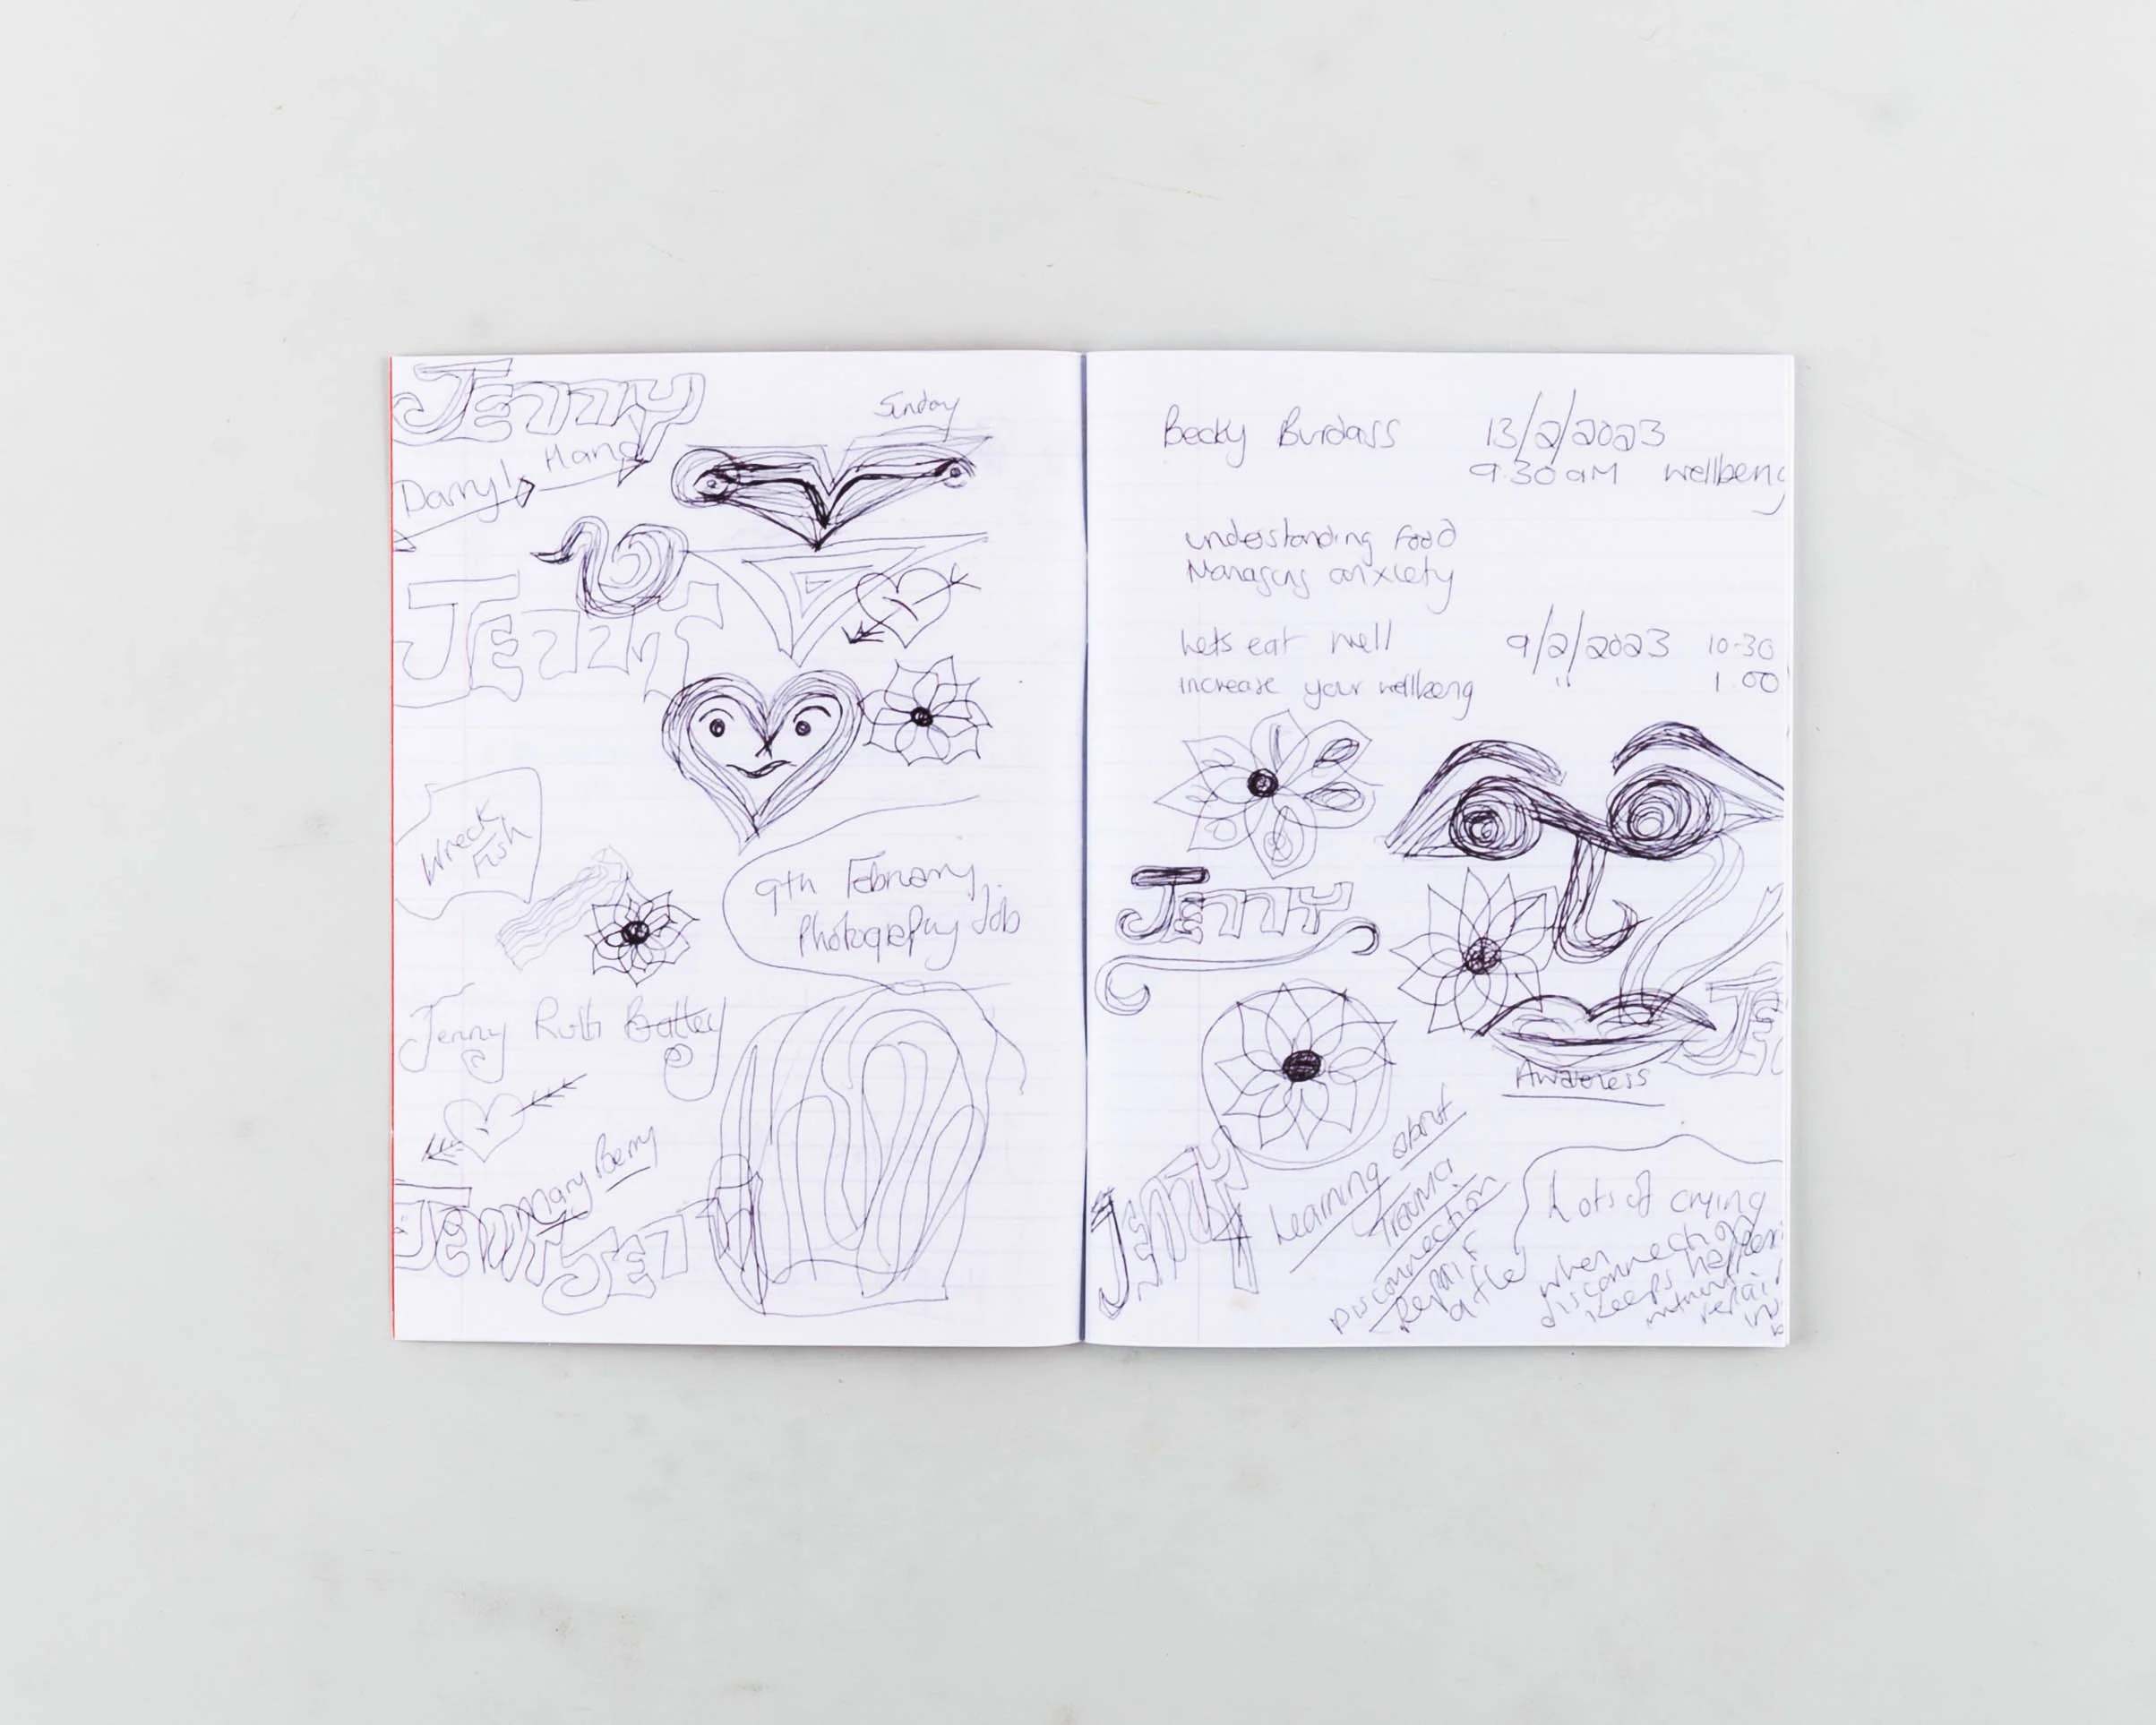 JENNY
Sunday
Darryl Hand
JENNY
Wreck
Fish
9th February
Photography Job
Jenny Ruth Battey
Mary Berry
JENNY JENNY
Becky Burdass 13/2/2023
9.30am wellbeing
understanding food
Managing anxiety
Lets eat well 9/2/2023 10-30
increase your wellbeing " 1.00
JENNY
JE
Awareness
JENNY
Learning about
Trauma
Disconnection
Repair
after
Lots of crying
when
disconnection
keeps